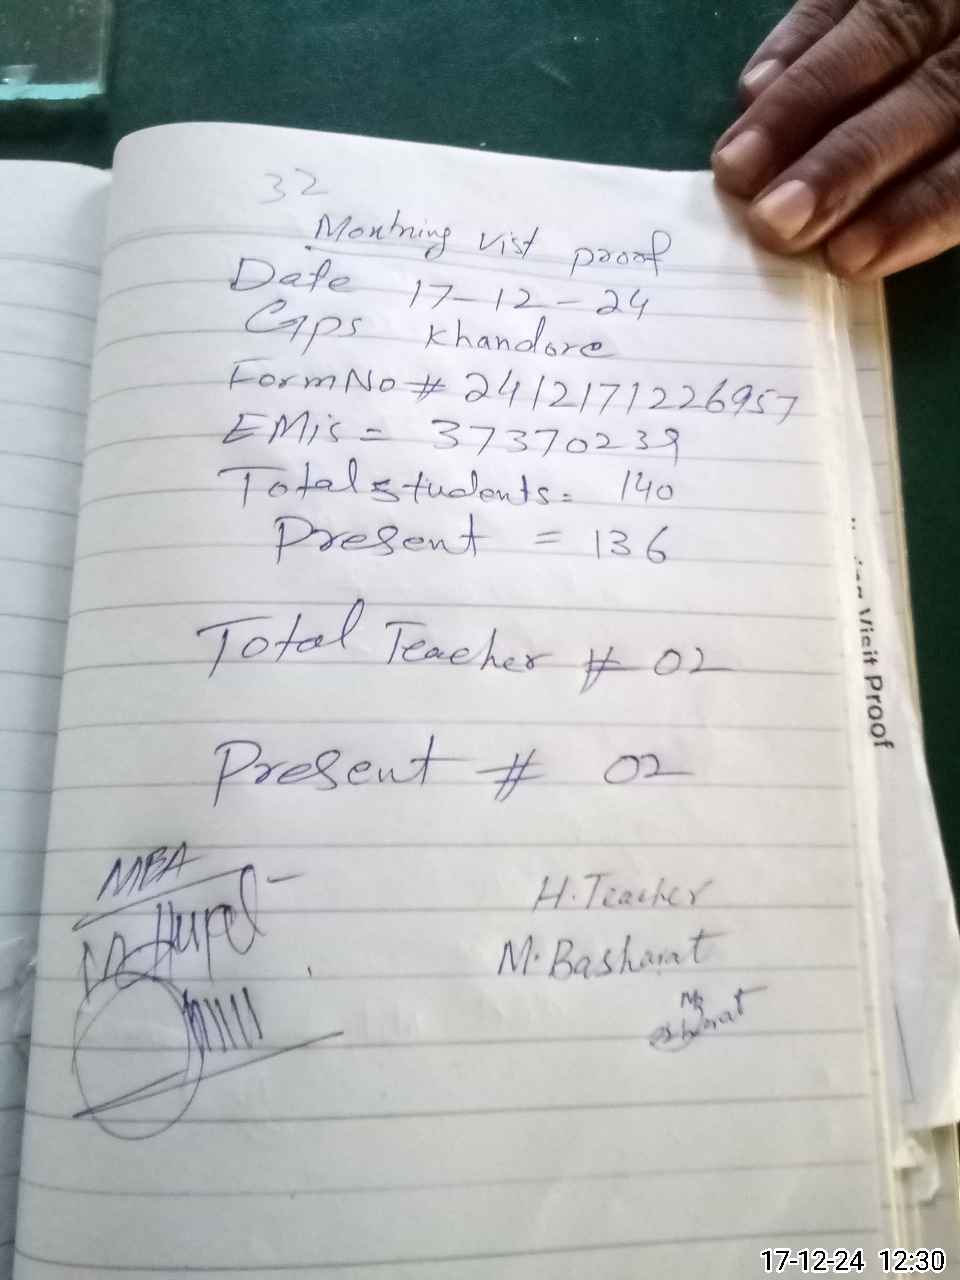 32
Montning vist proof
Date 17-12-24
Gps Khandore
Form No # 2412171226957
EMis = 37370239
Total students = 140
Present = 136
Total Teacher # 02
Present # 02
MBA
H. Teacher
M. Basharat
Visit Proof
17-12-24 12:30